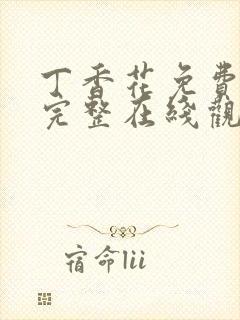 丁香花免費
完整在綫觀
宿命lii